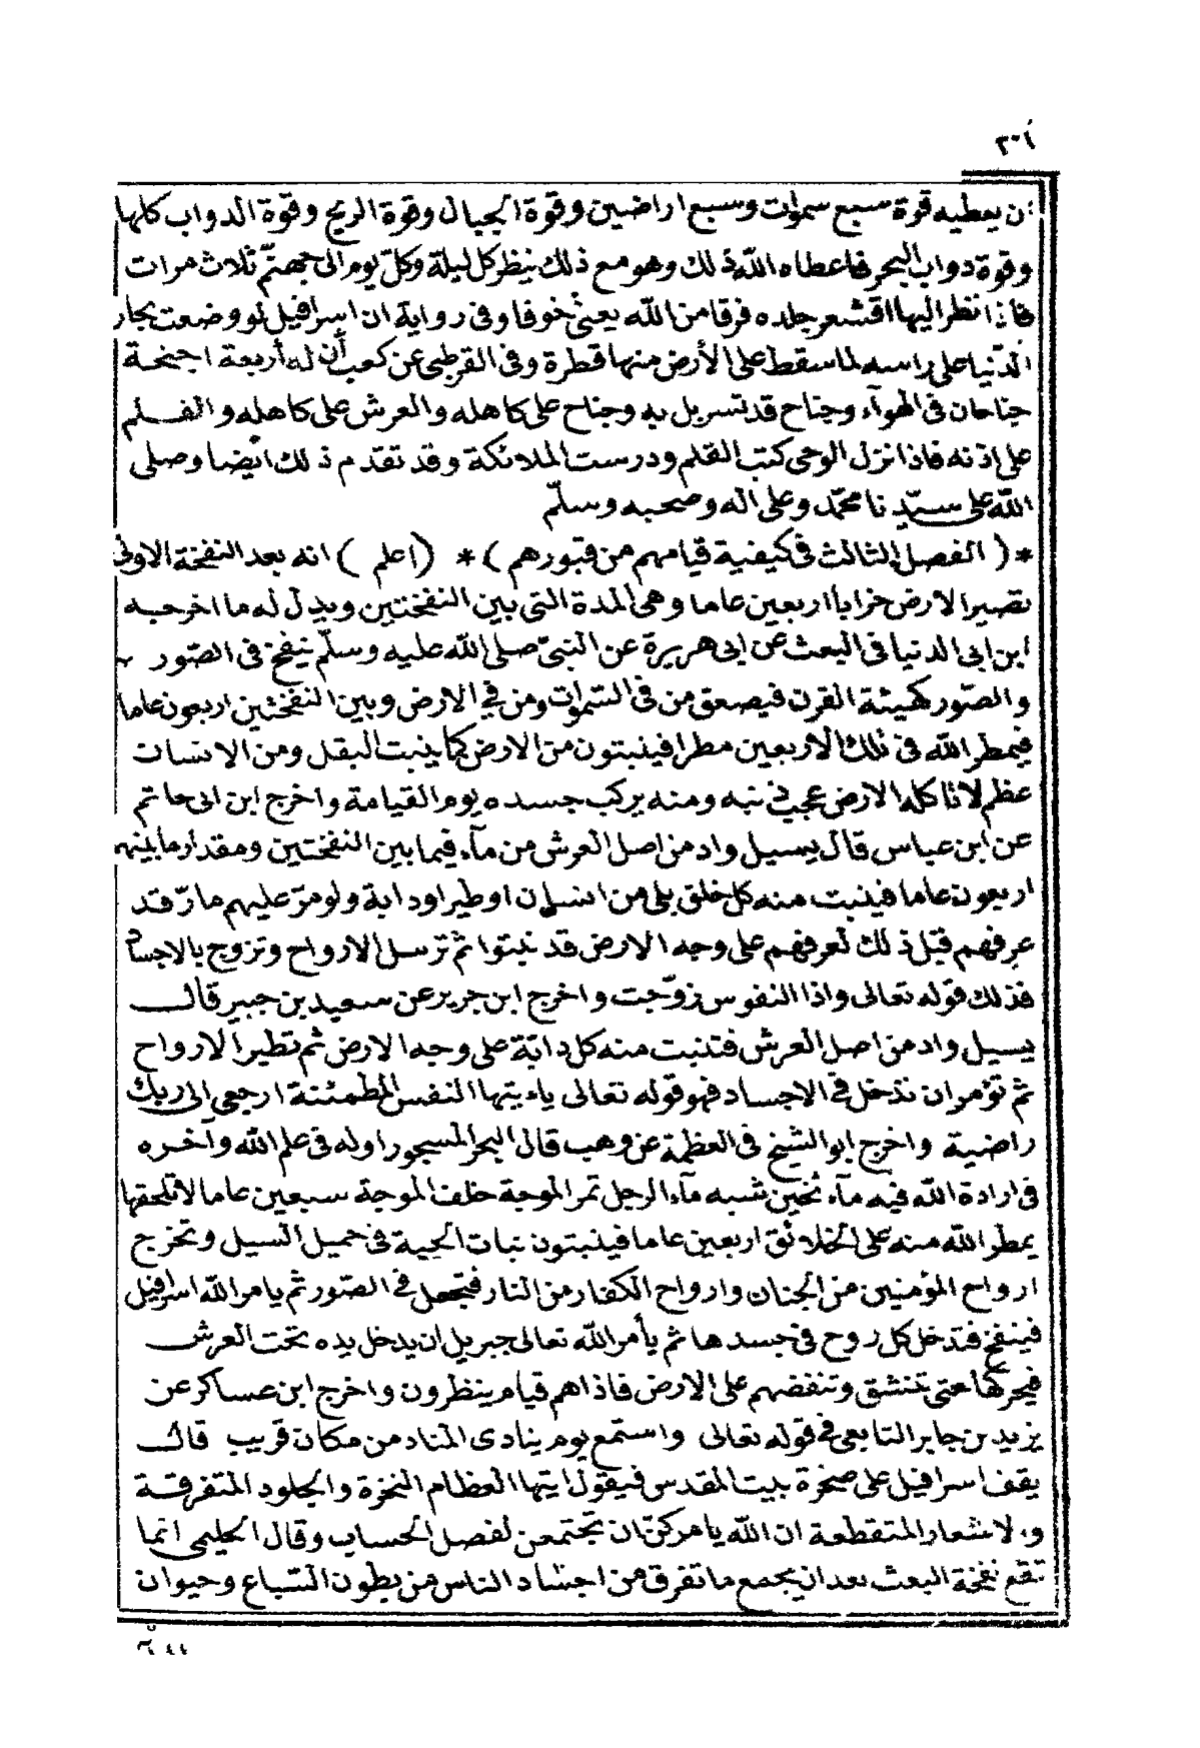 ان يعطيه قوة سبع سموات وسبع اراضين وقوة الجبال وقوة الريح وقوة الدواب كلها
وقوة دواب البحر فاعطاه الله ذلك وهو مع ذلك ينظر كل ليلة وكل يوم الى جهنم ثلاث مرات
فاذا نظر اليها اقشعر جلده فرقا من الله يعنى خوفا وفى رواية ان اسرافيل لو وضعت بحار
الدنيا على راسه لما سقط على الأرض منها قطرة وفى القرطبى عن كعب أن له أربعة اجنحة
جناحان فى الهوآء وجناح قد تسربل به وجناح على كاهله والعرش على كاهله والقلم
على اذنه فاذا نزل الوحى كتب القلم ودرست الملائكة وقد تقدم ذلك ايضا وصلى
الله على سيدنا محمد وعلى اله وصحبه وسلم
* ( الفصل الثالث فى كيفية قيامهم من قبورهم ) * (اعلم ) انه بعد النفخة الاولى
تصير الارض خرابا اربعين عاما وهى المدة التى بين النفختين ويدل له ما اخرجه
ابن ابى الدنيا فى البعث عن ابى هريرة عن النبى صلى الله عليه وسلم ينفخ فى الصور
والصور كهيئة القرن فيصعق من فى السموات ومن فى الارض وبين النفختين اربعون عاما
فيمطر الله فى تلك الاربعين مطرا فينبتون من الارض كما ينبت البقل ومن الانسان
عظم لا تاكله الارض عجب ذنبه ومنه يركب جسده يوم القيامة واخرج ابن ابى حاتم
عن ابن عباس قال يسيل واد من اصل العرش من مآء فيما بين النفختين ومقدار ما بينهم
اربعون عاما فينبت منه كل خلق بلى من انسان او طير او دابة ولو مر عليهم مار قد
عرفهم قبل ذلك لعرفهم على وجه الارض قد نبتوا ثم ترسل الارواح وتزوج بالاجسام
فذلك قوله تعالى واذا النفوس زوجت واخرج ابن جرير عن سعيد بن جبير قال
يسيل واد من اصل العرش فتنبت منه كل دابة على وجه الارض ثم تطير الارواح
ثم تؤمر ان تدخل فى الاجساد فهو قوله تعالى ياءيتها النفس المطمئنة ارجعى الى ربك
راضية واخرج ابو الشيخ فى العظمة عن وهب قال البحر المسجور اوله فى علم الله وآخره
فى ارادة الله فيه مآء ثخين شبه مآء الرجل تمر الموجة خلف الموجة سبعين عاما لا تلحقها
يمطر الله منه على الخلائق اربعين عاما فينبتون نبات الحبة فى حميل السيل وتخرج
ارواح المؤمنين من الجنان وارواح الكفار من النار فتجعل فى الصور ثم يامر الله اسرافيل
فينفخ فتدخل كل روح فى جسدها ثم يأمر الله تعالى جبريل ان يدخل يده تحت العرش
فيحركها حتى تنشق وتنفضهم على الارض فاذا هم قيام ينظرون واخرج ابن عساكر عن
يزيد بن جابر التابعى فى قوله تعالى واستمع يوم ينادى المناد من مكان قريب قال
يقف اسرافيل على صخرة بيت المقدس فيقول ايتها العظام النخرة والجلود المتفرقة
والاشعار المتقطعة ان الله يامركن ان تجتمعن لفصل الحساب وقال الحليمى انما
تقع نفخة البعث بعد ان يجمع ما تفرق من اجساد الناس من بطون السباع وحيوان